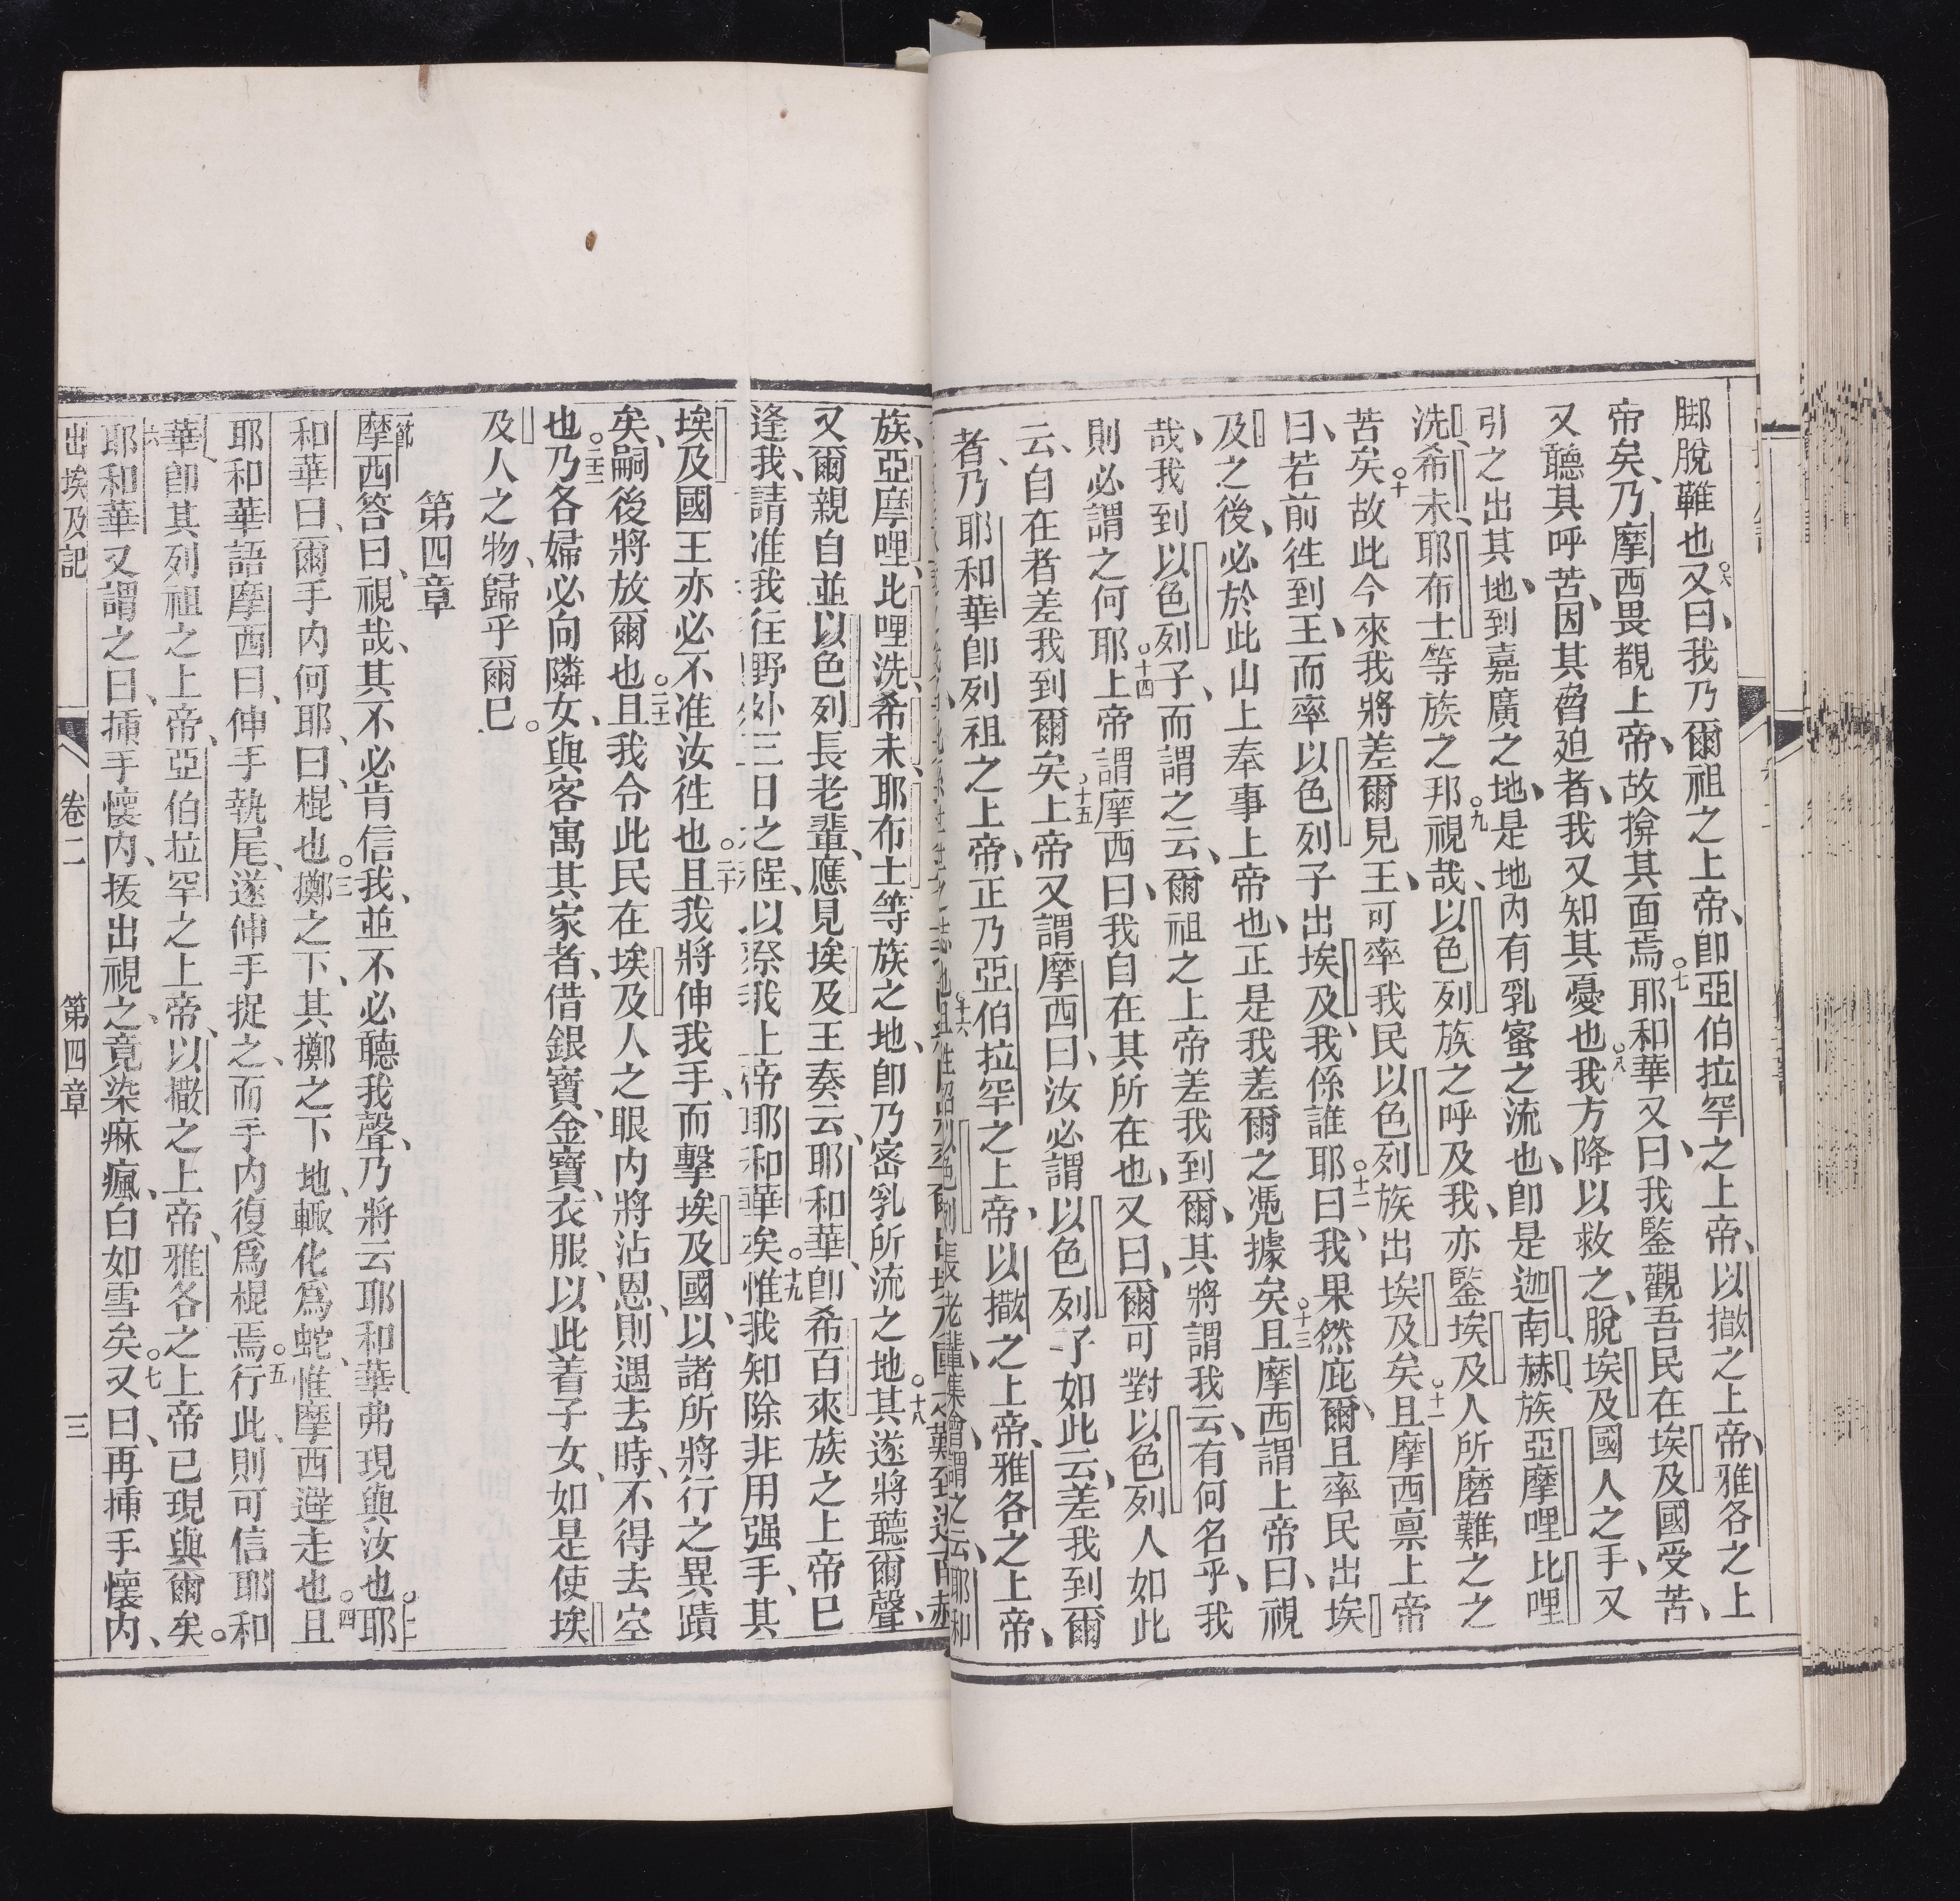 脚脫鞾也○六又曰、我乃爾祖之上帝、卽亞伯拉罕之上帝、以撒之上帝、雅各之上
帝矣、乃摩西畏覩上帝、故揜其面焉○七耶和華又曰、我鑒觀吾民在埃及國受苦、
又聽其呼苦、因其脅廹者、我又知其憂也○八我方降以救之、脫埃及國人之手、又
引之出其地、到嘉廣之地、是地內有乳蜜之流也、卽是迦南、赫族、亞摩哩、比哩
洗、希未、耶布士等族之邦○九視哉、以色列族之呼及我、亦鑒埃及人所磨難之之
苦矣○十故此今來我將差爾見王、可率我民以色列族出埃及矣○十一且摩西禀上帝
曰、若前徃到王、而率以色列子出埃及、我係誰耶○十二曰、我果然庇爾、且率民出埃
及之後、必於此山上奉事上帝也、正是我差爾之憑據矣○十三且摩西謂上帝曰、視
哉、我到以色列子、而謂之云、爾祖之上帝差我到爾、其將謂我云、有何名乎、我
則必謂之何耶○十四上帝謂摩西曰、我自在其所在也、又曰、爾可對以色列人如此
云、自在者差我到爾矣○十五上帝又謂摩西曰、汝必謂以色列子如此云、差我到爾
者、乃耶和華卽列祖之上帝、正乃亞伯拉罕之上帝、以撒之上帝、雅各之上帝、
族、亞摩哩、比哩洗、希未、耶布士等族之地、卽乃密乳所流之地○十八其遂將聽爾聲、
又爾親自並以色列長老輩、應見埃及王奏云、耶和華、卽希百來族之上帝已
逢我、請准我徃野外三日之程、以祭我上帝耶和華矣○十九惟我知除非用强手、其
埃及國王亦必不准汝徃也○二十且我將伸我手、而擊埃及國、以諸所將行之異蹟
矣、嗣後將放爾也○二十一且我令此民在埃及人之眼內將沾恩、則遇去時、不得去空
也○二十二乃各婦必向隣女、與客寓其家者、借銀寶、金寶、衣服、以此着子女、如是使埃
及人之物、歸乎爾已。
第四章
摩西答曰、視哉、其不必肯信我、並不必聽我聲、乃將云耶和華弗現與汝也○二耶
和華曰、爾手內何耶、曰、棍也○三擲之下、其擲之下地、輒化爲蛇、惟摩西避走也○四且
耶和華語摩西曰、伸手執尾、遂伸手捉之、而手內復爲棍焉○五行此、則可信耶和
華卽其列祖之上帝、亞伯拉罕之上帝、以撒之上帝、雅各之上帝已現與爾矣。
○六耶和華又謂之曰、揷手懷內、拔出視之、竟染痳瘋、白如雪矣○七又曰、再揷手懷內、
出埃及記 卷二 第四章 三